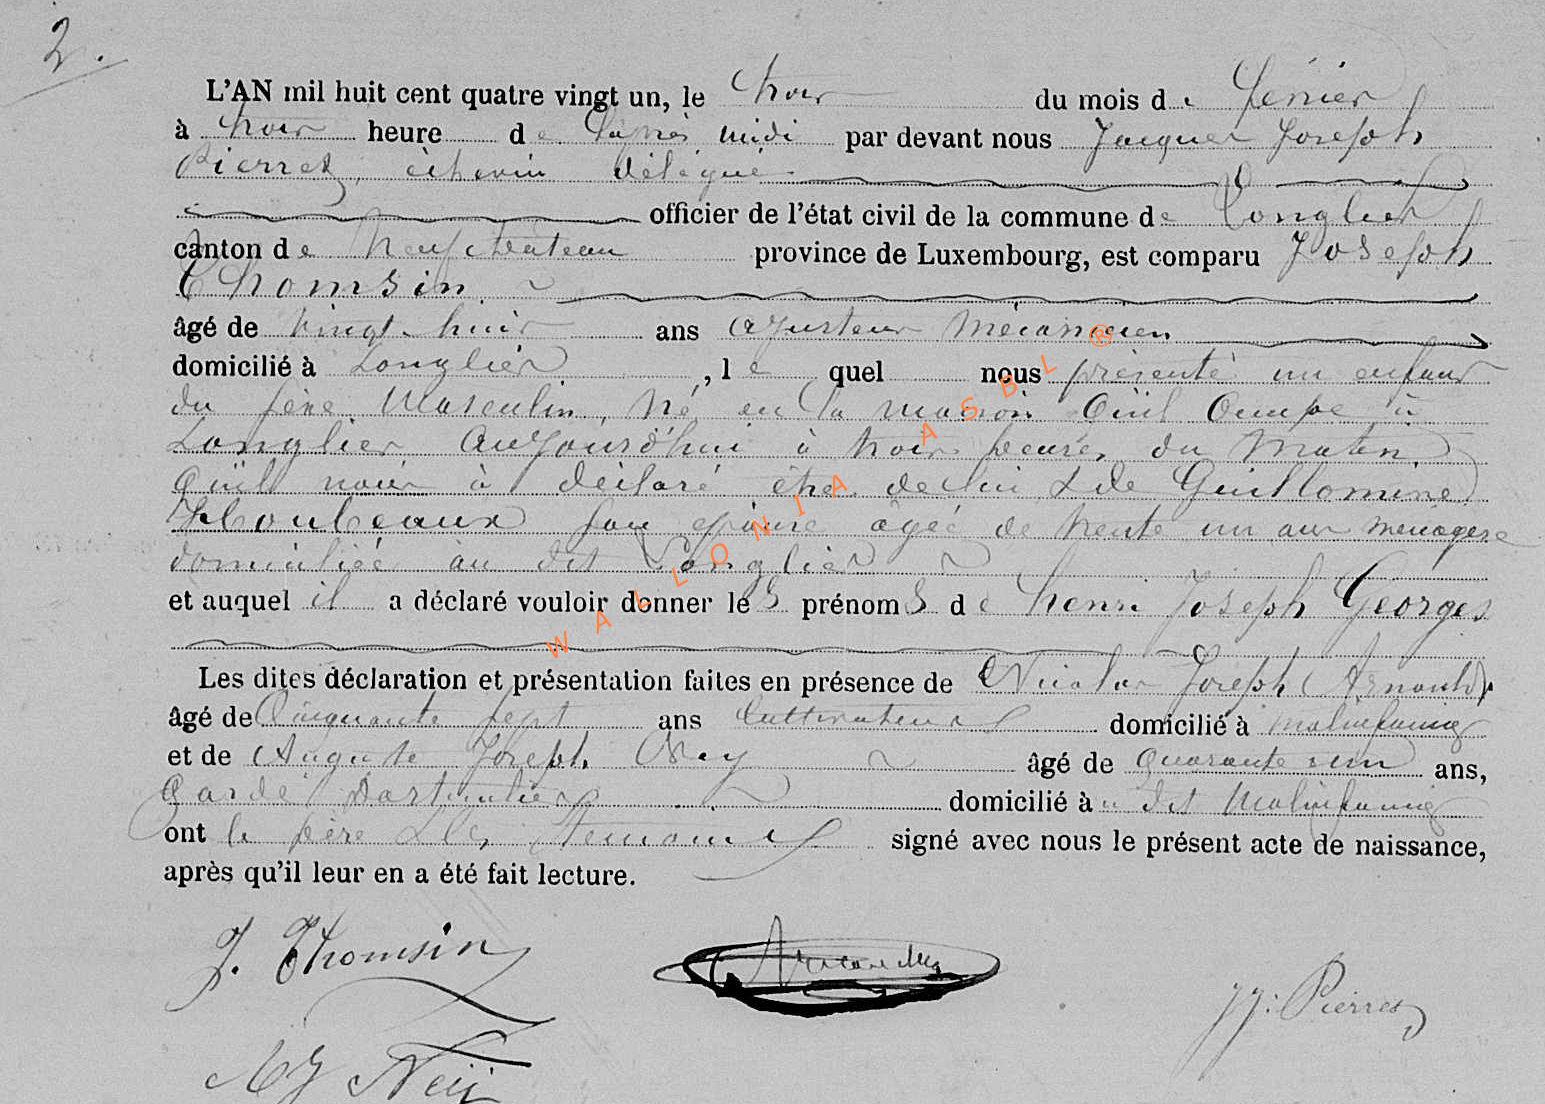 2.
L'AN mil huit cent quatre vingt un, le trois du mois de février
à trois heure de l'après midi par devant nous Jacques Joseph
Pierret, échevin délégué
officier de l'état civil de la commune de Longlier
canton de Neufchâteau province de Luxembourg, est comparu Joseph
Thomsin
âgé de vingt-huit ans ajusteur mécanicien
domicilié à Longlier, le quel nous présenté un enfant
du sexe Masculin, né en la maison qu'il occupe à
Longlier aujourd'hui à trois heures du matin
qu'il nous à déclaré être de lui & de Guillomine
son épouse agée de trente un ans ménagère
domiciliée au dit Longlier
et auquel il a déclaré vouloir donner les prénoms de henri Joseph Georges
Les dites déclaration et présentation faites en présence de Nicolas Joseph Arnould
âgé de Cinquante sept ans Cultivateur domicilié à
et de Auguste Joseph Ney âgé de quarante ans,
Garde Particulier domicilié à dit
ont le père & les témoins signé avec nous le présent acte de naissance,
après qu'il leur en a été fait lecture.
J. Thomsin
JJ. Pierret
AJ Neÿ
WALLONIA ASBL ®